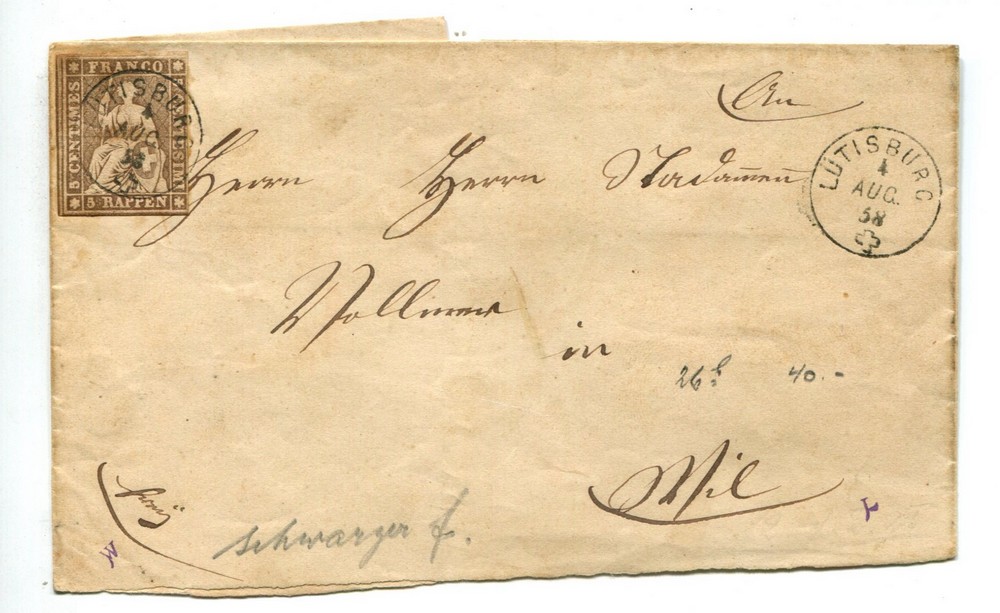 FRANCO
5 CENTIMES
5 RAPPEN
LÜTISBURG
4
AUG.
58
An
Herrn Herrn Stadammen
LÜTISBURG
4
AUG.
58
Vollmer
in
26f 40.-
Wil
franco
schwarzer f.